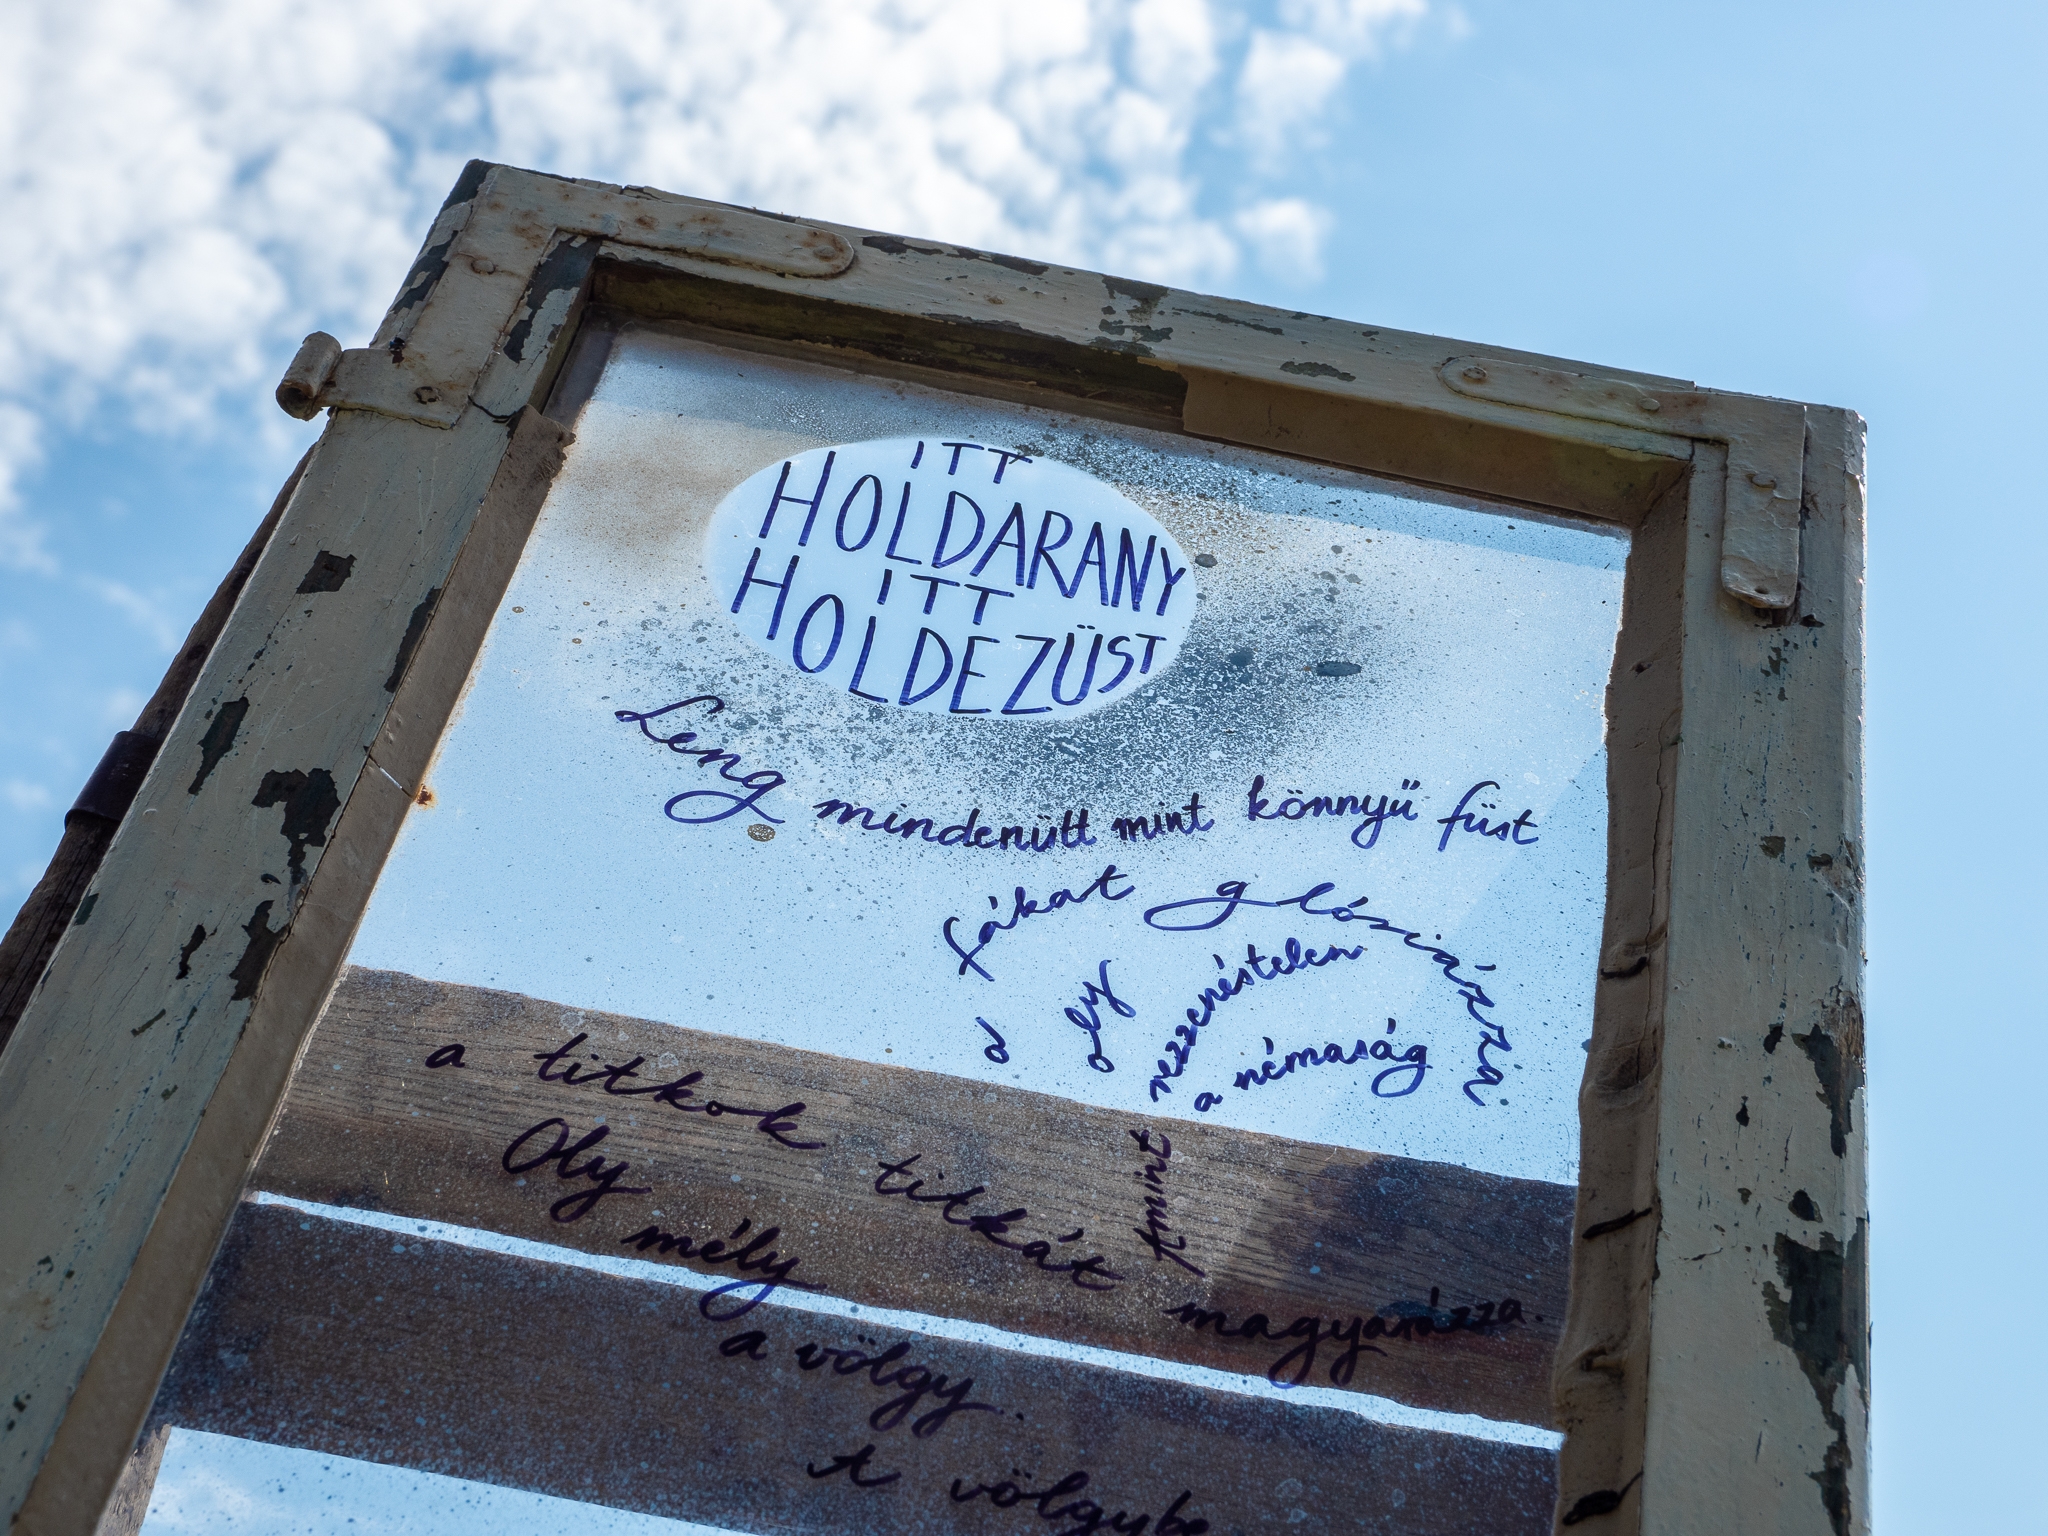 ITT
HOLDARANY
ITT
HOLDEZÜST
Leng mindenütt mint könnyű füst
Amint
a fákat glósiázza
oly rezzenéstelen
a némaság
a titkok titkát magyarázza.
Oly mély
a völgy..
A völgybe